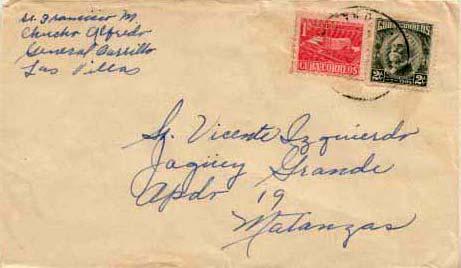 Francisco M.
Chucho Alfredo
General Carrillo
Las Villas
1
CUBA CORREOS
CUBA CORREOS
2¢ 2¢
Sr. Vicente Izquierdo
Jagüey Grande
Apdo 19
Matanzas